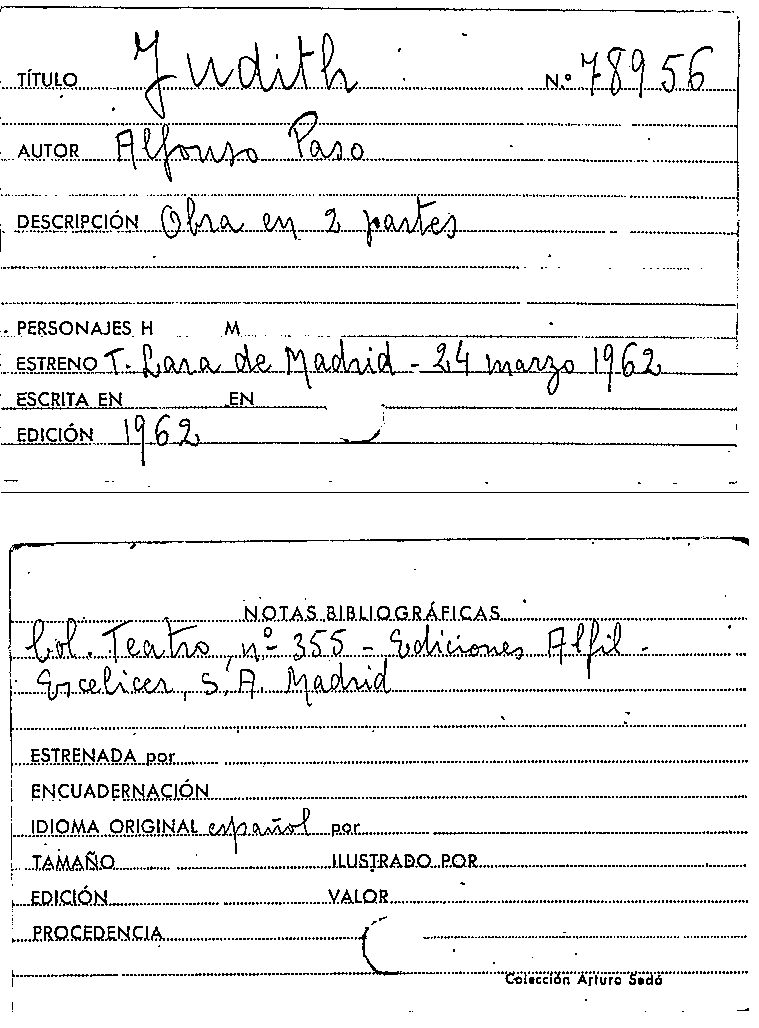 TÍTULO Judith N.º 78956
AUTOR Alfonso Paso
DESCRIPCIÓN Obra en 2 partes
PERSONAJES H M
ESTRENO T. Lara de Madrid - 24 marzo 1962
ESCRITA EN EN
EDICIÓN 1962
NOTAS BIBLIOGRÁFICAS
Col. Teatro, nº 355 - Ediciones Alfil -
Escelicer, S.A. Madrid
ESTRENADA por
ENCUADERNACIÓN
IDIOMA ORIGINAL español por
TAMAÑO ILUSTRADO POR
EDICIÓN VALOR
PROCEDENCIA
Colección Arturo Sedó